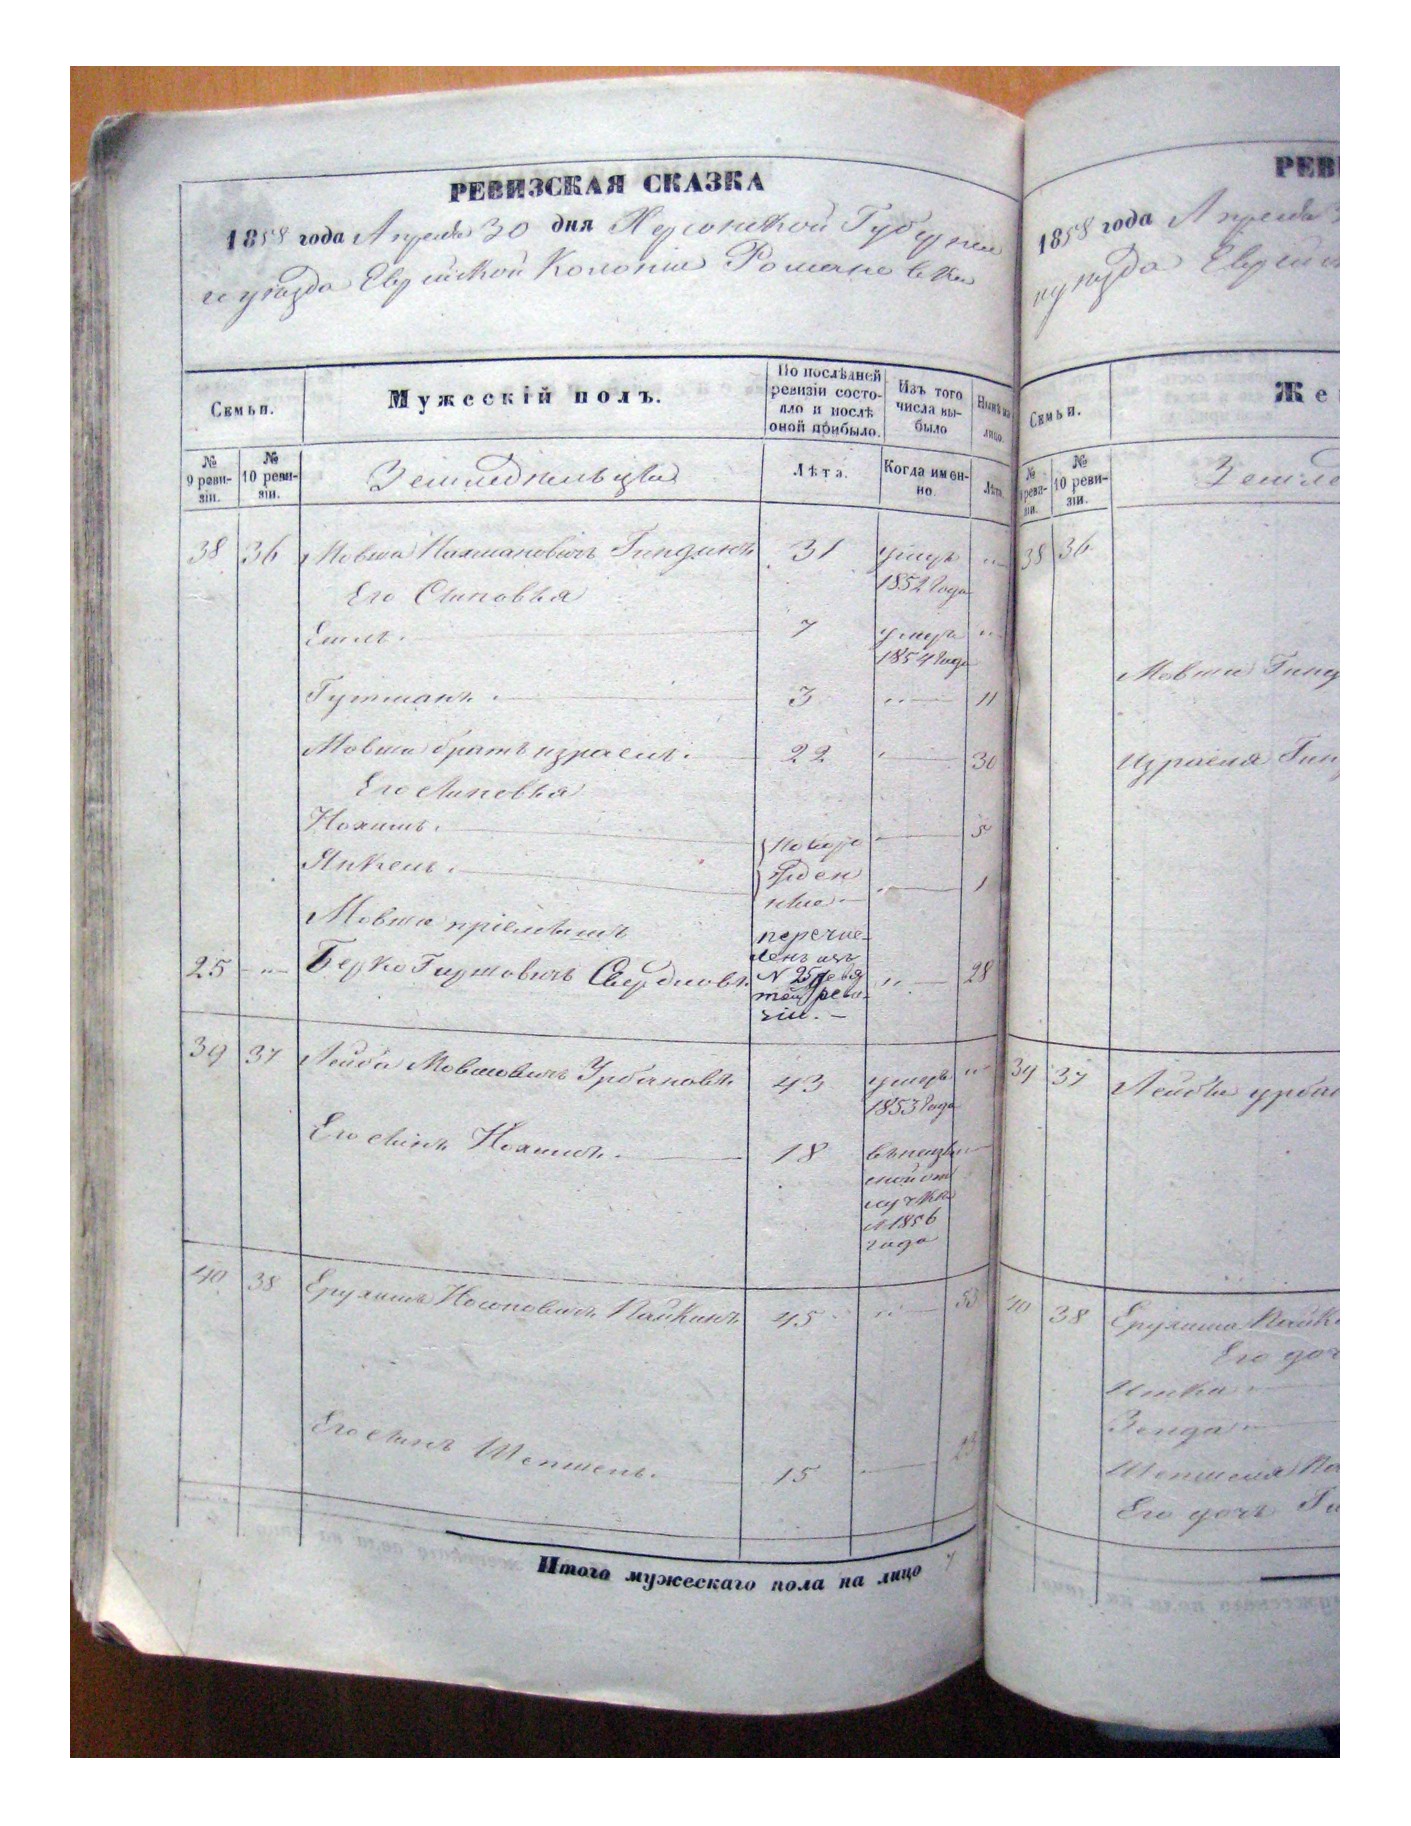 РЕВИЗСКАЯ СКАЗКА
1858 года Апреля 30 дня Херсонской Губернии
и уезда Еврейской Колонии Романовки
Семьи.
Мужескій полъ.
По послѣдней
ревизіи состо-
яло и послѣ
оной прибыло.
Изъ того
числа вы-
было
Нынѣ на
лицо.
№
9 реви-
зіи.
№
10 реви-
зіи.
Земледельцы
Лѣта.
Когда имен-
но.
Лѣта.
38 36 Мовша Нахманович Гиндинъ 31 умеръ
1852 года
Его Сыновья
7 умеръ
1854 года
Гутманъ. 3 11
Мовши братъ Израель. 22 30
Его сыновья
Нохимъ. 5
Янкель. 1
новоро
жден
ные
Мовши пріемышъ
25 Берко Гиршовичъ Свердловъ 28
перечис-
ленъ изъ
N 25 девя
той реви-
зіи.
39 37 Лейба Мовшовичъ Урбановъ 43 умеръ
1853 года
Его сынъ Нохимъ. 18 въ неизв
сной от
лучке
с 1856
года
40 38 Ерухимъ Носоновичъ Пайкинъ 45 53
Его сынъ Шепшень. 15 23
Итого мужескаго пола на лицо 7
РЕВ
1858 года Апреля
и уезда Еврейск
Семьи.
Же
№
9 реви-
зіи.
№
10 реви-
зіи.
Земле
38 36
Мовши Гинд
Израеля Гин
39 37 Лейбы Урба
40 38 Ерухима Пайк
Его доч
Итка
Зенда
Шепшеля Па
Его дочь Ги